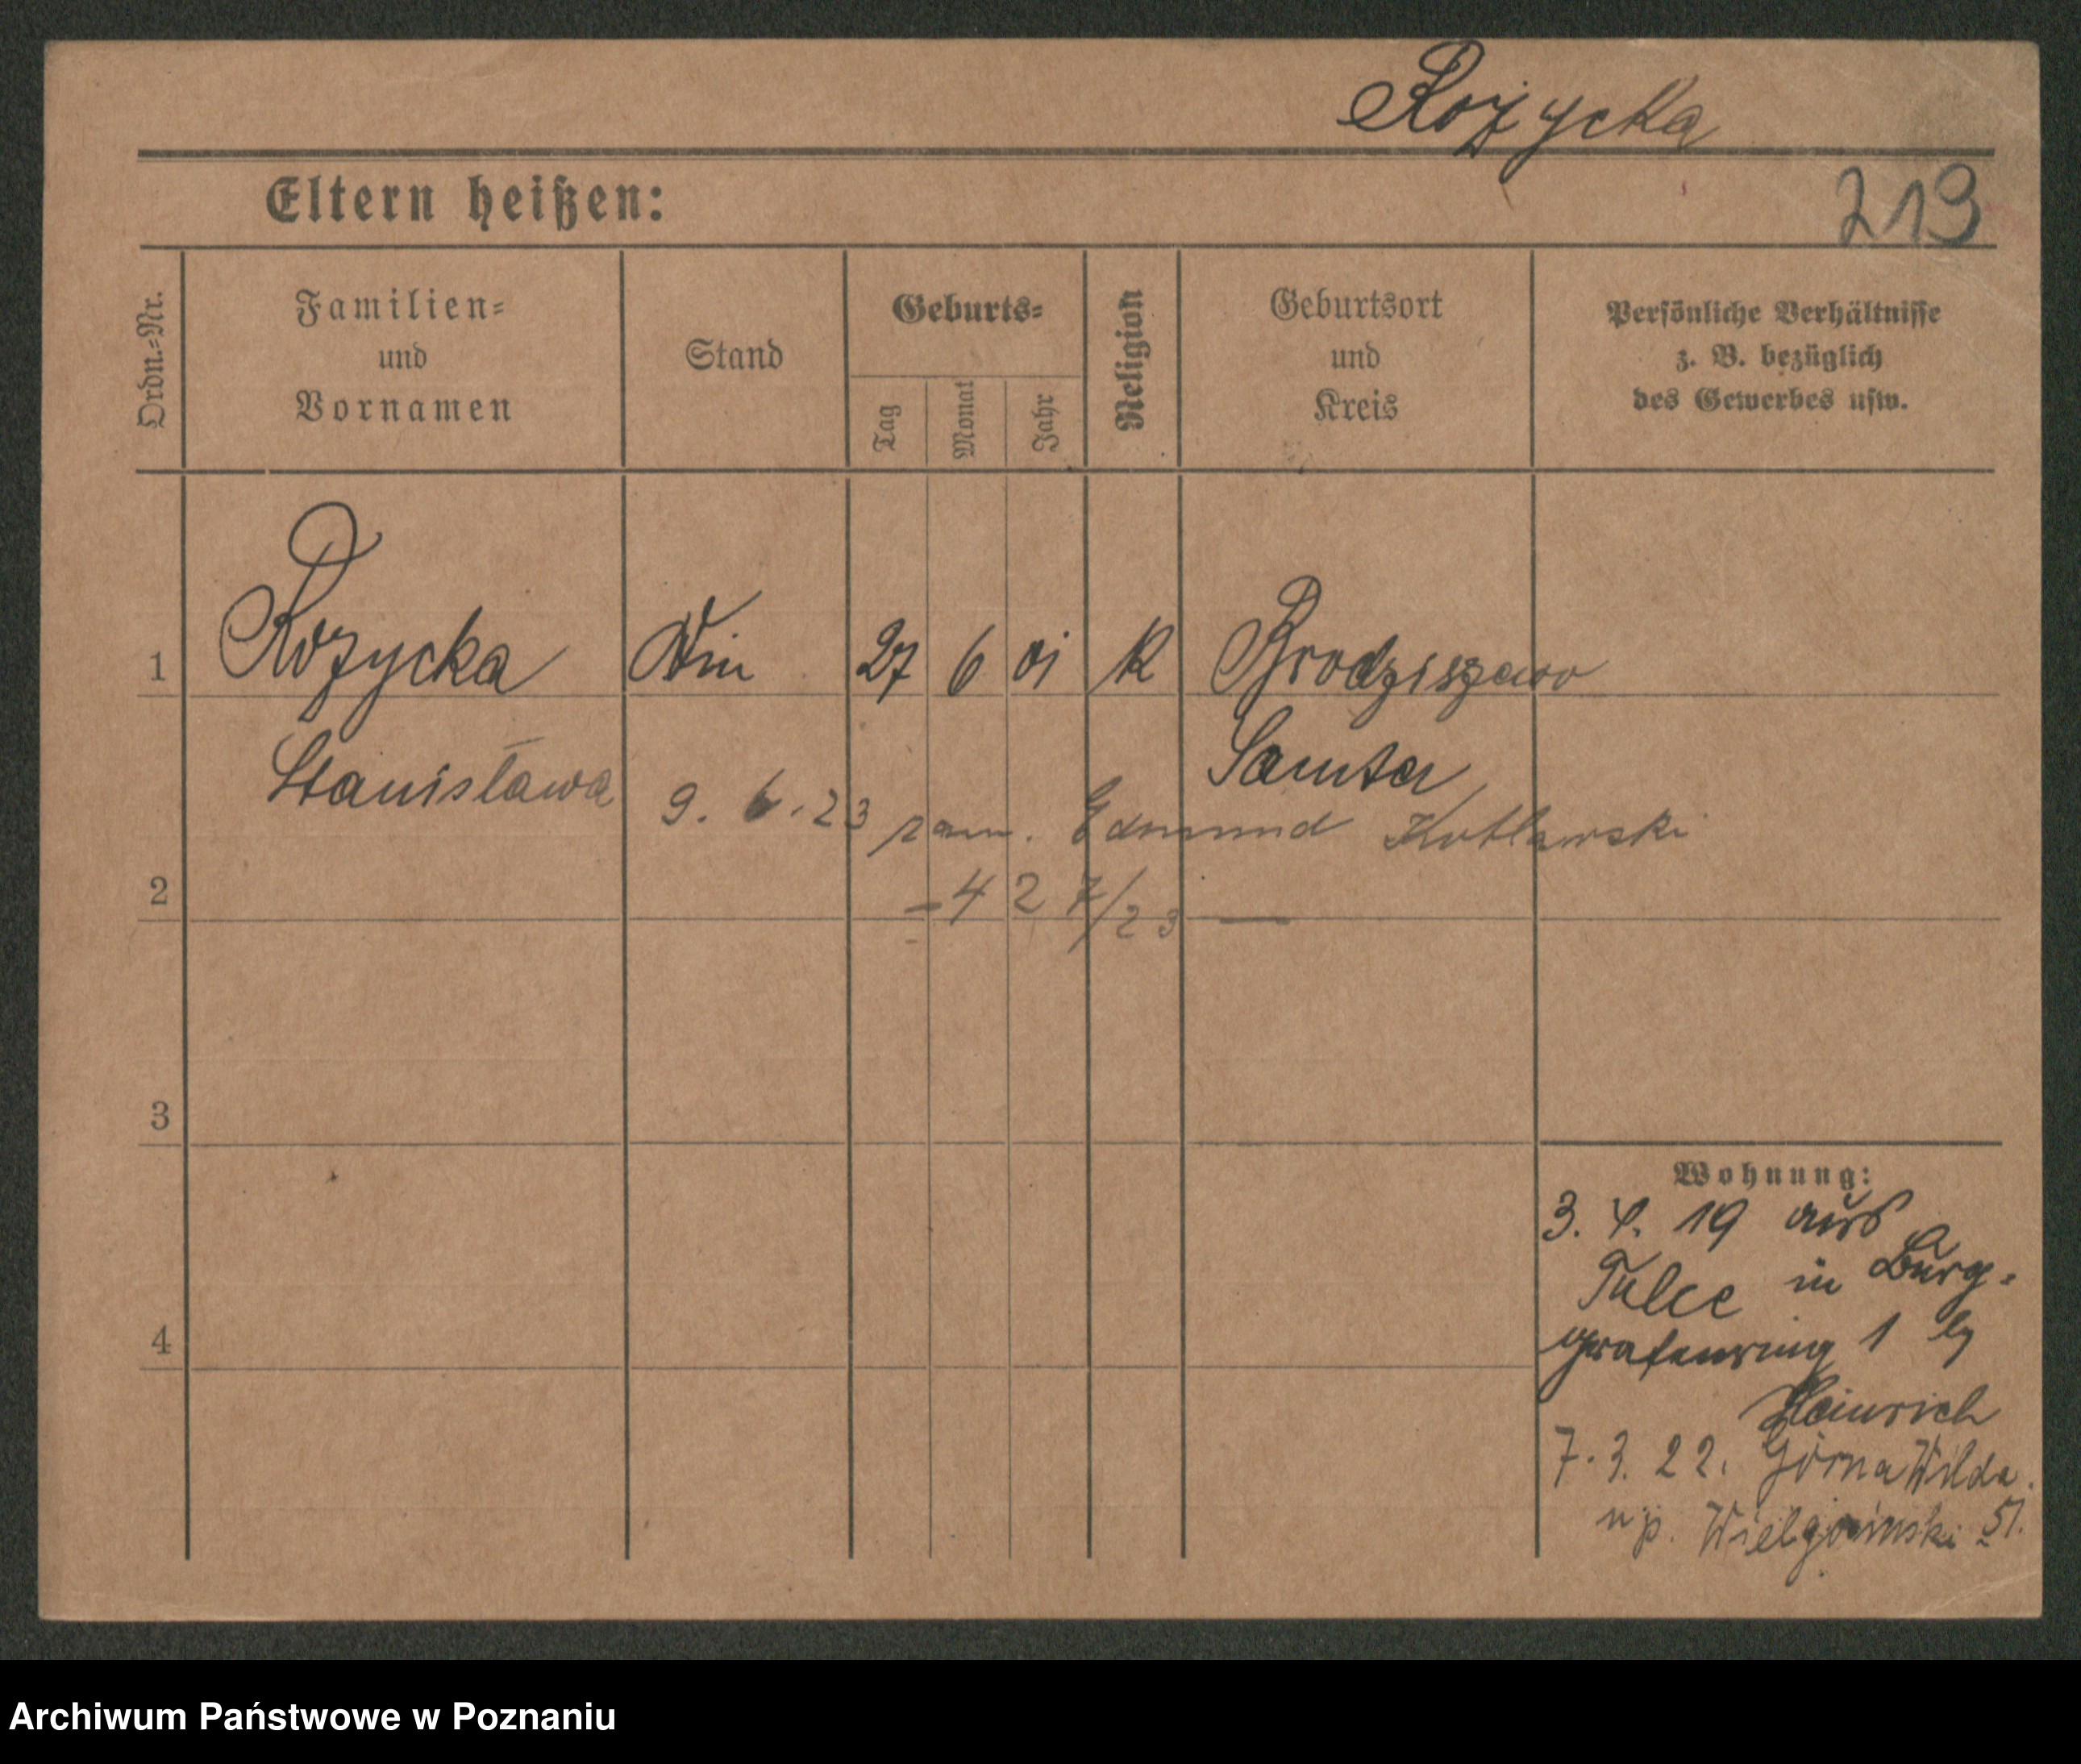 Rożycka
213
Eltern heißen:
Ordn.-Nr.
Familien-
und
Vornamen
Stand
Geburts-
Tag
Monat
Jahr
Religion
Geburtsort
und
Kreis
Persönliche Verhältnisse
z. B. bezüglich
des Gewerbes usw.
1 Rozycka 27 6 01 K Brodziszewo
Stanisława Samter
9. 6. 23 zam. Edmund Kotlarski
2 - 427/23 -
3
4
Wohnung:
3. 4. 19 aus
Tulce in Burg-
grafenring 1 bei
Heinrich
7. 3. 22. Górna Wilda
51.
Archiwum Państwowe w Poznaniu